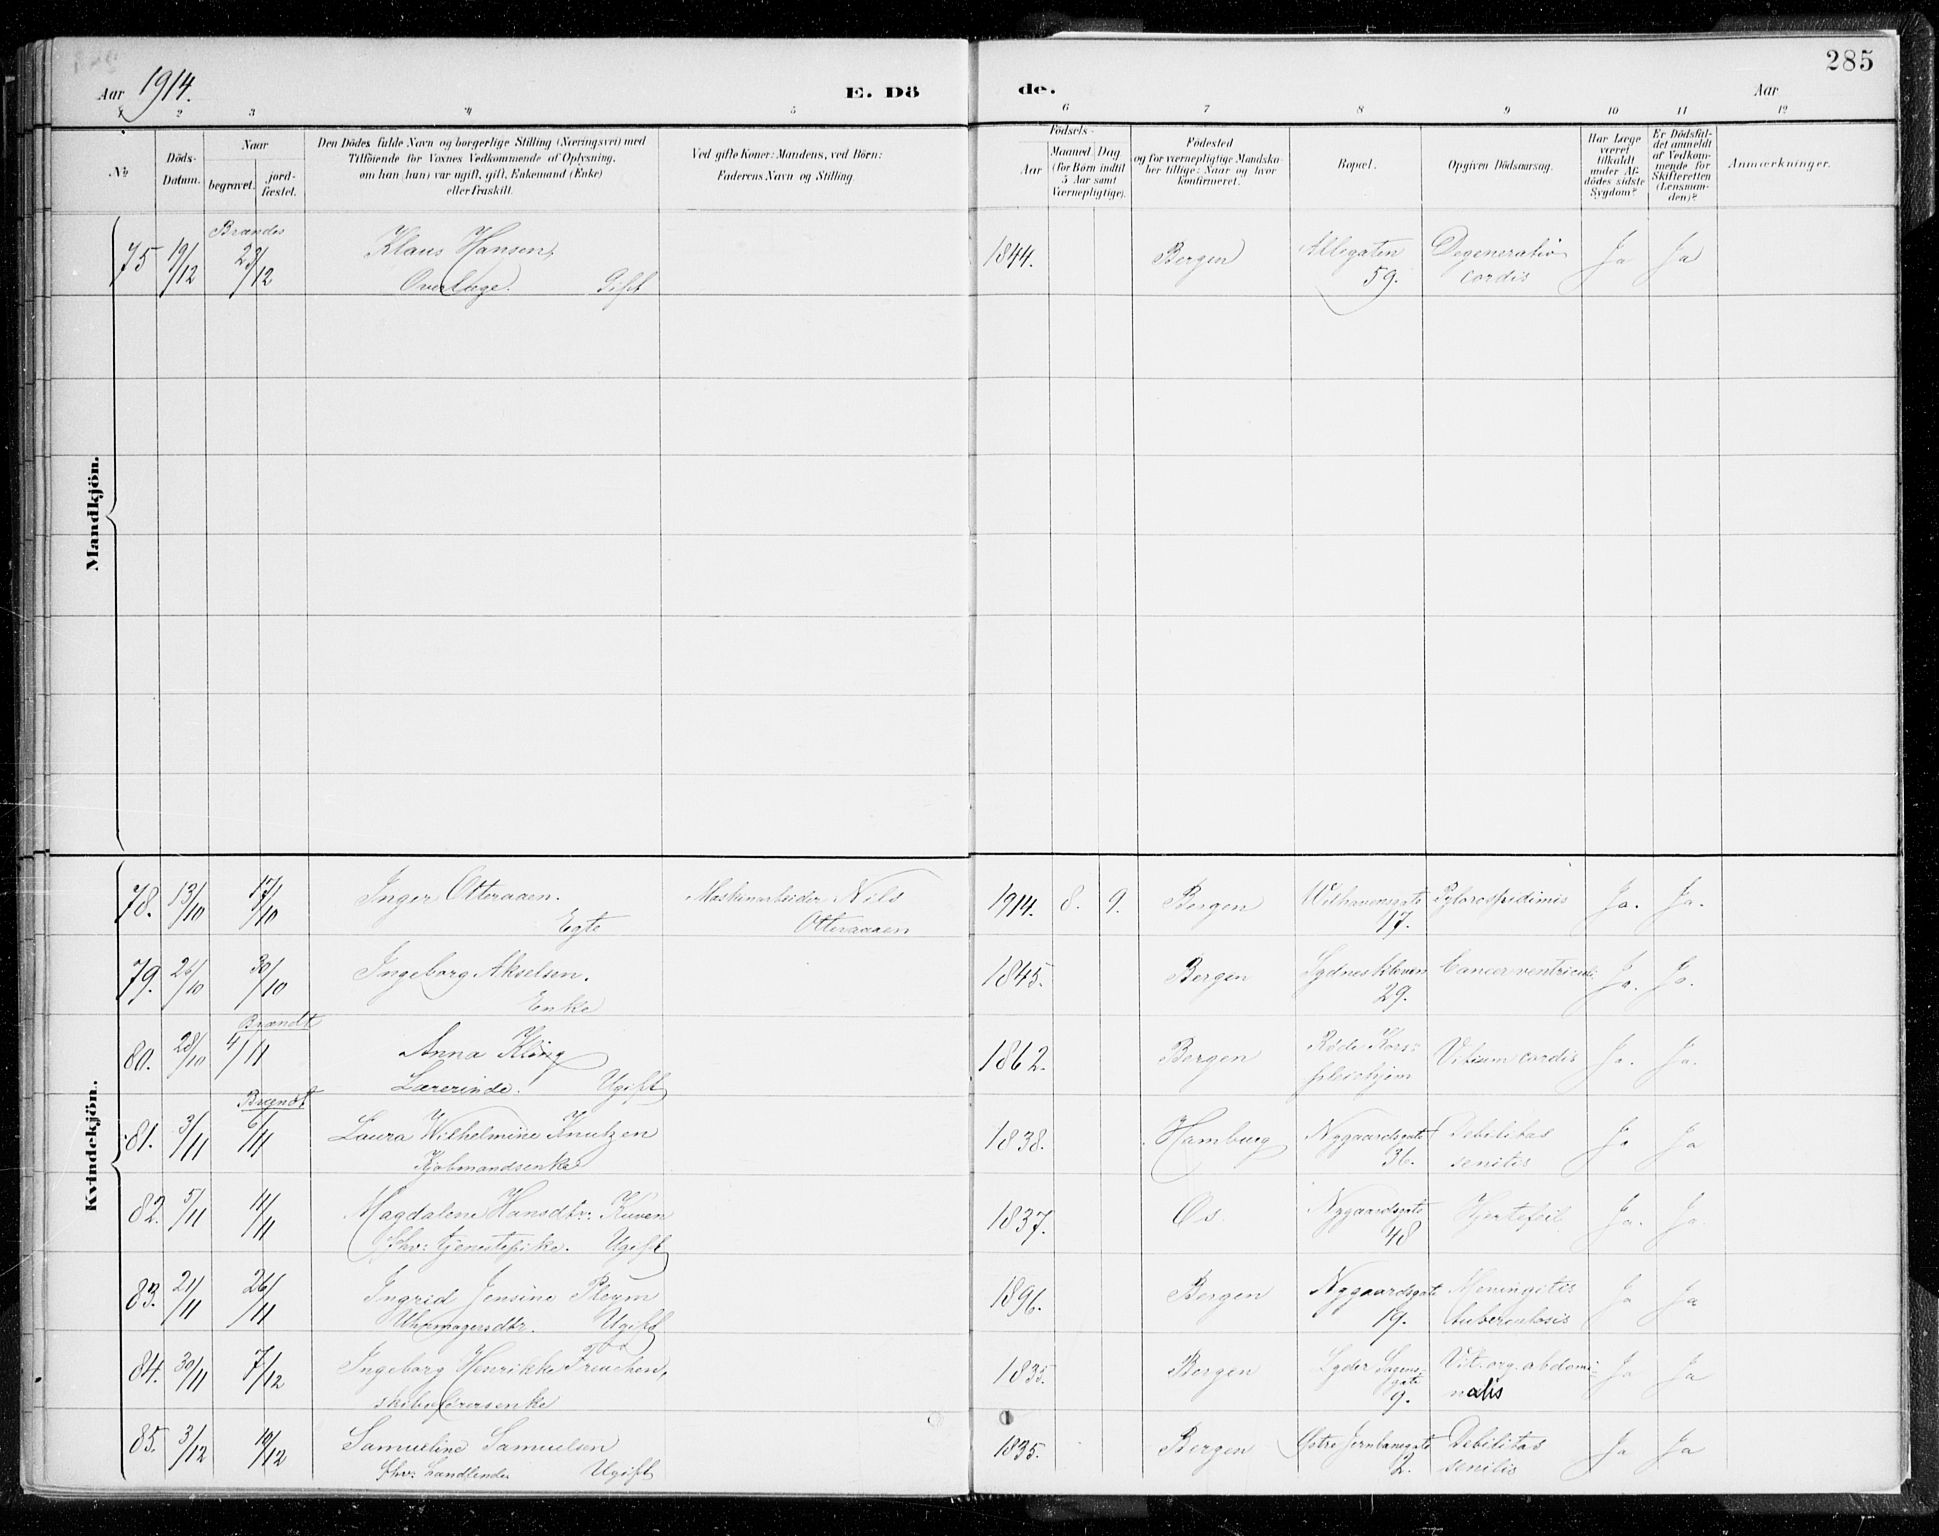 285
Aar 1914. E. Dö de. Aar
1 2 3 4 5 6 7 8 9 10 11 12
No
Döds-Datum.
Naar
begravet.
jord-fæstet.
Den Dödes fulde Navn og borgerlige Stilling (Næringsvei) med
Tilföiende for Voxnes Vedkommende af Oplysning,
om han (hun) var ugift, gift, Enkemand (Enke)
eller fraskilt.
Ved gifte Koner: Mandens, ved Börn:
Faderens Navn og Stilling
Födsels-
Aar
Maaned Dag
(for Börn indtil
5 Aar samt
Værnepligtige).
Födested
og for værnepligtige Mandska-
ber tillige: Naar og hvor
konfirmeret.
Bopæl.
Opgiven Dödsaarsag.
Har Læge
været
tilkaldt
under Af-
dödes sidste
Sygdom?
Er Dödsfal-
det anmeldt
af Vedkom-
mende for
Skifteretten
(Lensman-
den)?
Anmærkninger.
Mandkjön.
Brændes
75 19/12 23/12 Klaus Hansen, 1844. Bergen Allegaten Degeneratio Ja Ja
Overlæge. Gift 59. cordis
Kvindekjön.
78. 13/10 17/10 Inger Otteraaen. Maskinarbeider Nils 1914. 8. 9. Bergen Welhavensgate 17. Ja. Ja.
Egte Otteraaen
79. 26/10 30/10 Ingeborg Akselsen. 1845. Bergen Sydneskleven Cancer ventriculi Ja. Ja.
Enke 29.
Brændt
80. 28/10 4/11 Anna Kling 1862. Bergen Røde Kors: Vitium cordis Ja. Ja.
Lærerinde. Ugift pleiehjem
Brændt
81. 3/11 6/11 Laura Wilhelmine Knutzen 1838. Hamburg Nygaardsgate Debilitas Ja Ja
Kjøbmandsenke 36. senilis
82. 5/11 11/11 Magdalene Hansdtr: Kuven 1837. Os. Nygaardsgate Hjertefeil Ja. Ja.
fhv: tjenestepike. Ugift 48
83. 21/11 26/11 Ingrid Jensine Pleym 1896. Bergen Nygaardsgate Meningitis Ja Ja
Uhrmagersdtr. Ugift 19. tuberculosis
84. 30/11 7/12 Ingeborg Henrikke Freuchen, 1835. Bergen Lyder Sagens- Vit. org. abdomi- Ja Ja
skibsførersenke gate 9. nalis
85. 3/12 10/12 Samueline Samuelsen 1835. Bergen Østre Jernbanegate Debilitas Ja Ja
fhv: Ugift 12. senilis